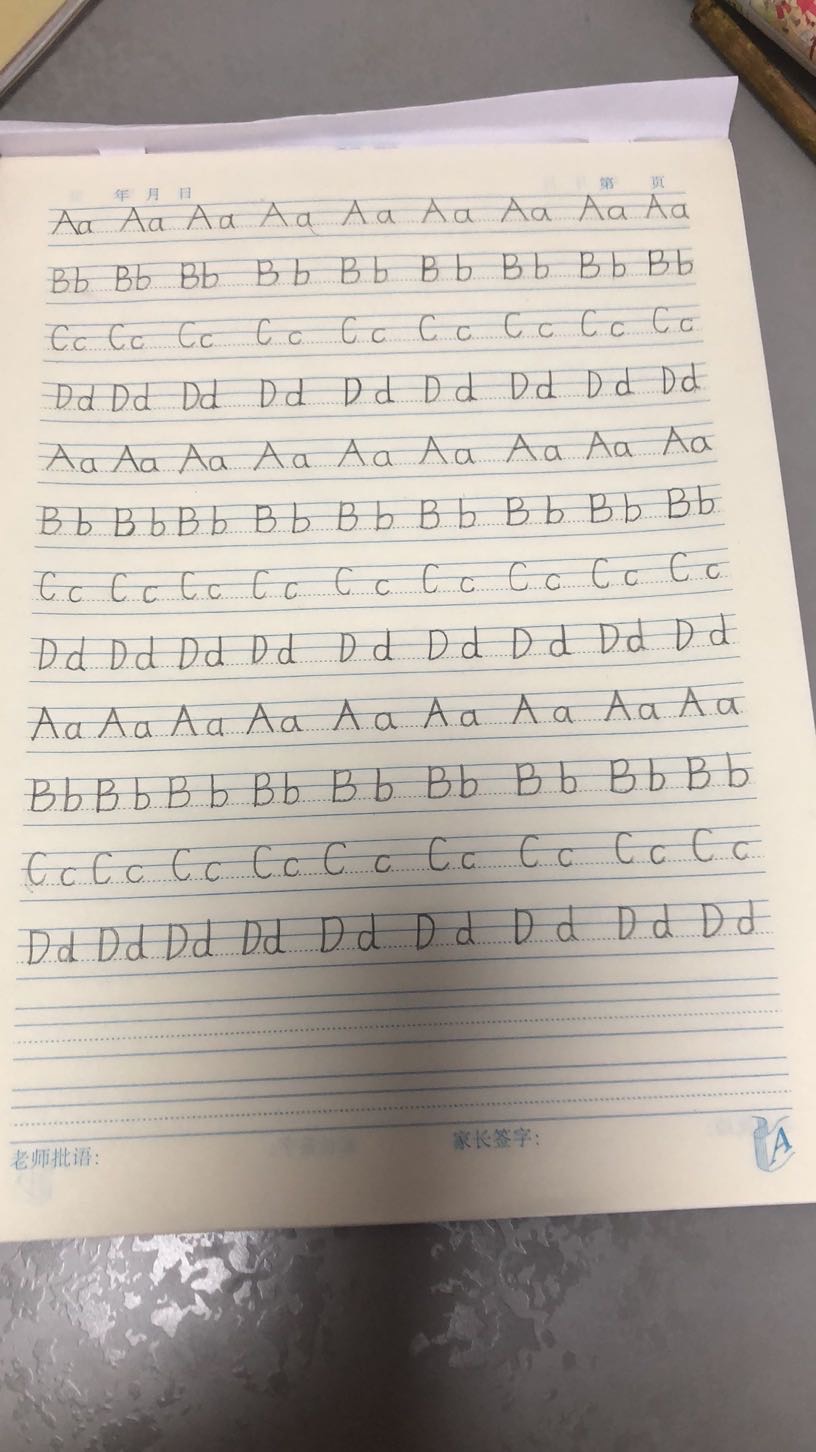 年 月 日 第 页
Aa Aa Aa Aa Aa Aa Aa Aa Aa
Bb Bb Bb Bb Bb Bb Bb Bb Bb
Cc Cc Cc Cc Cc Cc Cc Cc Cc
Dd Dd Dd Dd Dd Dd Dd Dd Dd
Aa Aa Aa Aa Aa Aa Aa Aa Aa
Bb Bb Bb Bb Bb Bb Bb Bb Bb
Cc Cc Cc Cc Cc Cc Cc Cc Cc
Dd Dd Dd Dd Dd Dd Dd Dd Dd
Aa Aa Aa Aa Aa Aa Aa Aa Aa
Bb Bb Bb Bb Bb Bb Bb Bb Bb
Cc Cc Cc Cc Cc Cc Cc Cc Cc
Dd Dd Dd Dd Dd Dd Dd Dd Dd
老师批语: 家长签字: A